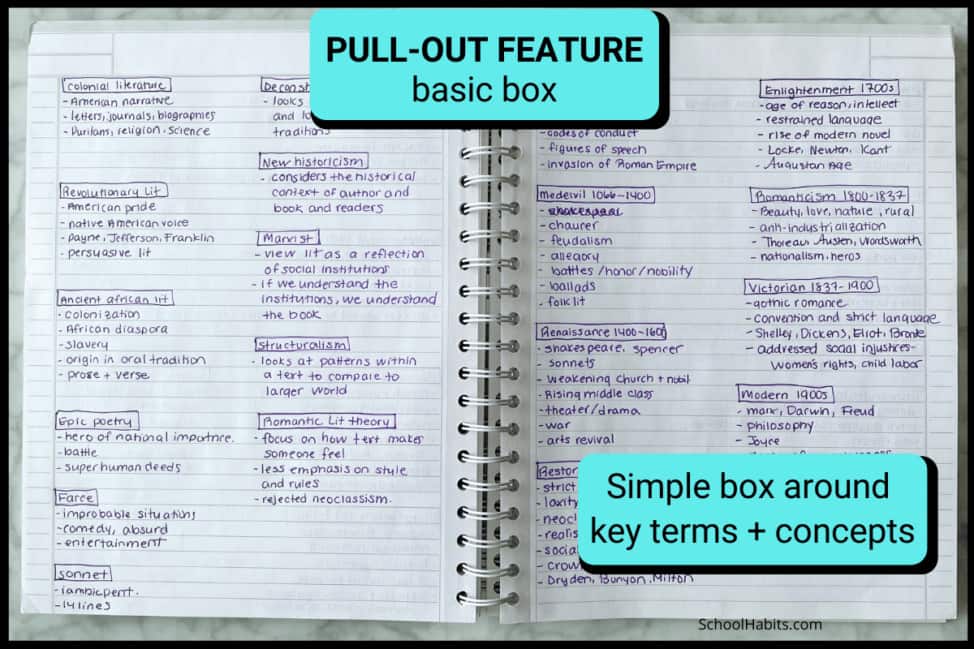 PULL-OUT FEATURE
basic box
colonial literature
- American narrative
- letters, journals, biographies
- Puritans, religion, science
Revolutionary Lit
- American pride
- native American voice
- payne, Jefferson, Franklin
- persuasive lit
Ancient african lit
- colonization
- African diaspora
- slavery
- origin in oral tradition
- prose + verse
Epic poetry
- hero of national importnce.
- battle
- super human deeds
Farce
- improbable situations
- comedy, absurd
- entertainment
sonnet
- iambic pent.
- 14 lines
- looks
and
tradition
New historicism
- considers the historical
context of author and
book and readers
Marxist
- view lit as a reflection
of social institutions
- if we understand the
institutions, we understand
the book
Structuralism
- looks at patterns within
a text to compare to
larger world
Romantic Lit theory
- focus on how text makes
someone feel
- less emphasis on style
and rules
- rejected neoclassism.
- codes of conduct
- figures of speech
- invasion of Roman Empire
medeivil 1066-1400
- chaurer
- feudalism
- allegory
- battles/honor/nobility
- ballads
- folk lit
Renaissance 1400-1600
- shakespeare, spencer
- sonnets
- weakening church + nobil
- Rising middle class
- theater/drama
- war
- arts revival
- Dryden, Bunyon, Milton
Enlightenment 1700s
- age of reason, intellect
- restrained language
- rise of modern novel
- Locke, Newton, Kant
- Augustan Age
Romanticism 1800-1837
- Beauty, love, nature, rural
- anti-industrialization
- Thoreau, Austen, Wordsworth
- nationalism, heros
Victorian 1837-1900
- gothic romance
- convention and strict language
- Shelley, Dickens, Eliot, Bronte
- addressed social injustices-
women's rights, child labor
Modern 1900s
- marx, Darwin, Freud
- philosophy
- Joyce
Simple box around
key terms + concepts
SchoolHabits.com